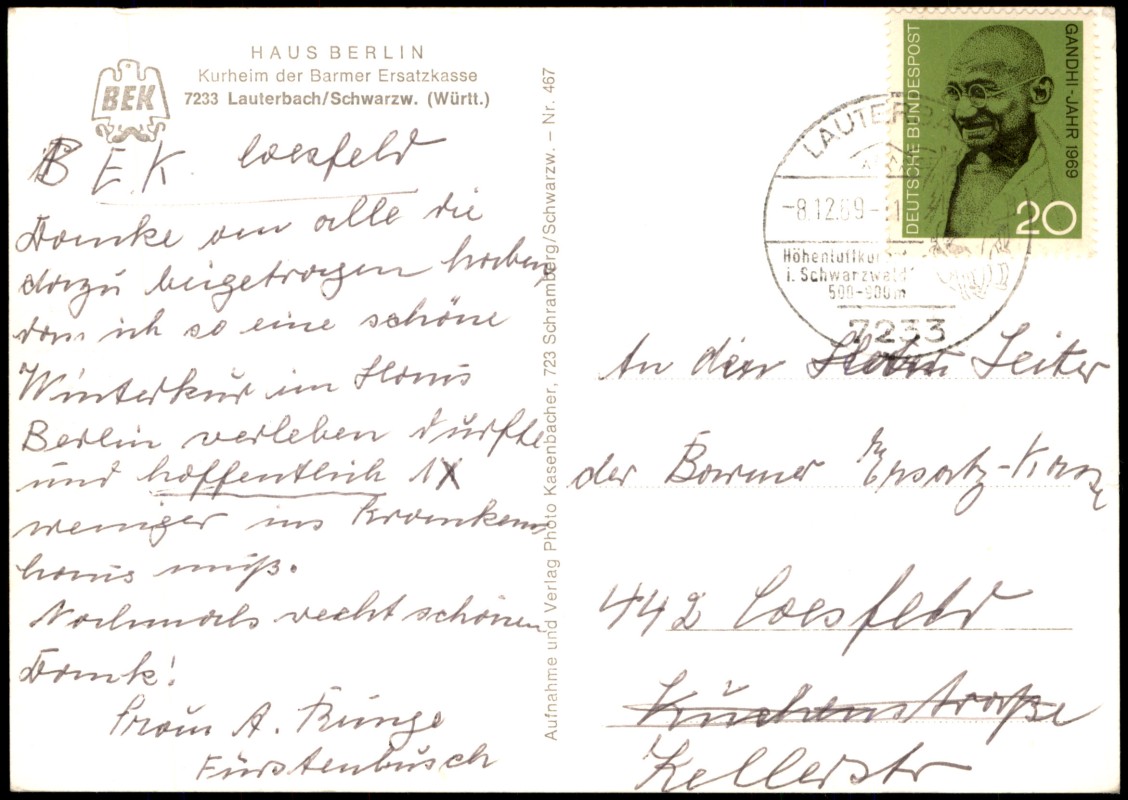 HAUS BERLIN
Kurheim der Barmer Ersatzkasse
7233 Lauterbach/Schwarzw. (Württ.)
BEK
BEK Coesfeld
Danke an alle die
dazu beigetragen haben,
dass ich so eine schöne
Winterkur im Haus
Berlin verleben durfte
und hoffentlich 1X
weniger ins Kranken
haus muß.
Nochmals recht schönen
Dank!
Frau A. Runge
Fürstenbusch
Aufnahme und Verlag Photo Kasenbacher, 723 Schramberg/Schwarzw. – Nr. 467
DEUTSCHE BUNDESPOST
GANDHI-JAHR 1969
20
LAUTERBA
-8.12.69-
Höhenluftkur
i. Schwarzwald
500-900m
7233
An den Leiter
der Barmer Ersatz-Kasse
442 Coesfeld
Kuchenstraße
Kellerstr